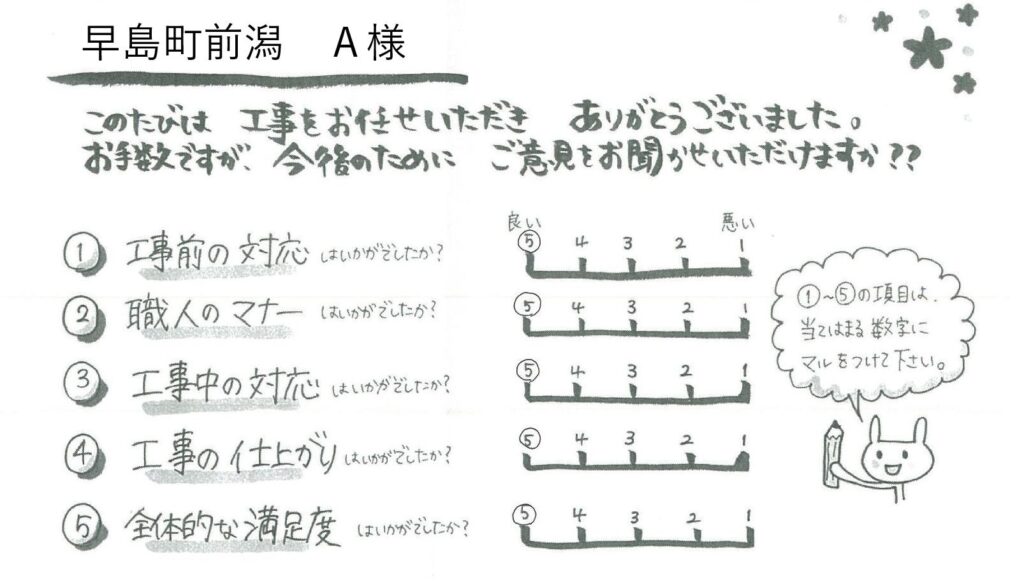 早島町前潟　A様
このたびは　工事をお任せいただき　ありがとうございました。
お手数ですが、今後のために　ご意見をお聞かせいただけますか??
良い　悪い
① 工事前の対応 はいかがでしたか?　⑤ 4 3 2 1
② 職人のマナー はいかがでしたか?　⑤ 4 3 2 1
③ 工事中の対応 はいかがでしたか?　⑤ 4 3 2 1
④ 工事の仕上がり はいかがでしたか?　⑤ 4 3 2 1
⑤ 全体的な満足度 はいかがでしたか?　⑤ 4 3 2 1
①~⑤の項目は、
当てはまる数字に
マルをつけて下さい。